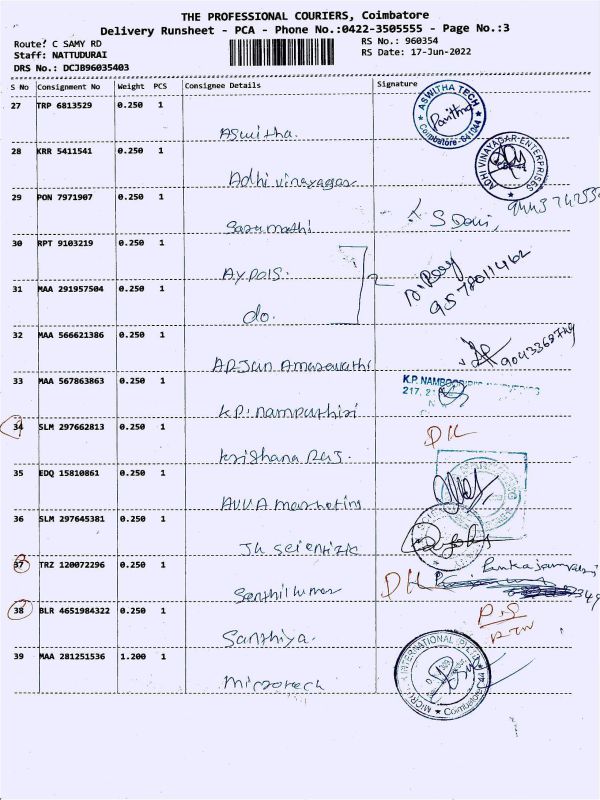 THE PROFESSIONAL COURIERS, Coimbatore
Delivery Runsheet - PCA - Phone No.:0422-3505555 - Page No.:3
Route: C SAMY RD
Staff: NATTUDURAI
DRS No.: DCJB96035403
RS No.: 960354
RS Date: 17-Jun-2022
S No Consignment No Weight PCS Consignee Details Signature
27 TRP 6813529 0.250 1
Aswitha.
ASWITHA TECH
Pavithra
Coimbatore - 641044
28 KRR 5411541 0.250 1
Adhi vinayagar
ADHI VINAYAGAR ENTERPRISES
29 PON 7971907 0.250 1
S Devi,
30 RPT 9103219 0.250 1
31 MAA 291957504 0.250 1
do.
9578011462
32 MAA 566621386 0.250 1
33 MAA 567863863 0.250 1
K.P. namputhiri
K.P. NAMBOODIRI
34 SLM 297662813 0.250 1
Krishana Raj.
DL
35 EDQ 15810861 0.250 1
AVVA marketing
36 SLM 297645381 0.250 1
Jh scientific
37 TRZ 120072296 0.250 1
Senthilkumar
DL
38 BLR 4651984322 0.250 1
Santhiya.
39 MAA 281251536 1.200 1
Microtech
INTERNATIONAL
Coimbatore